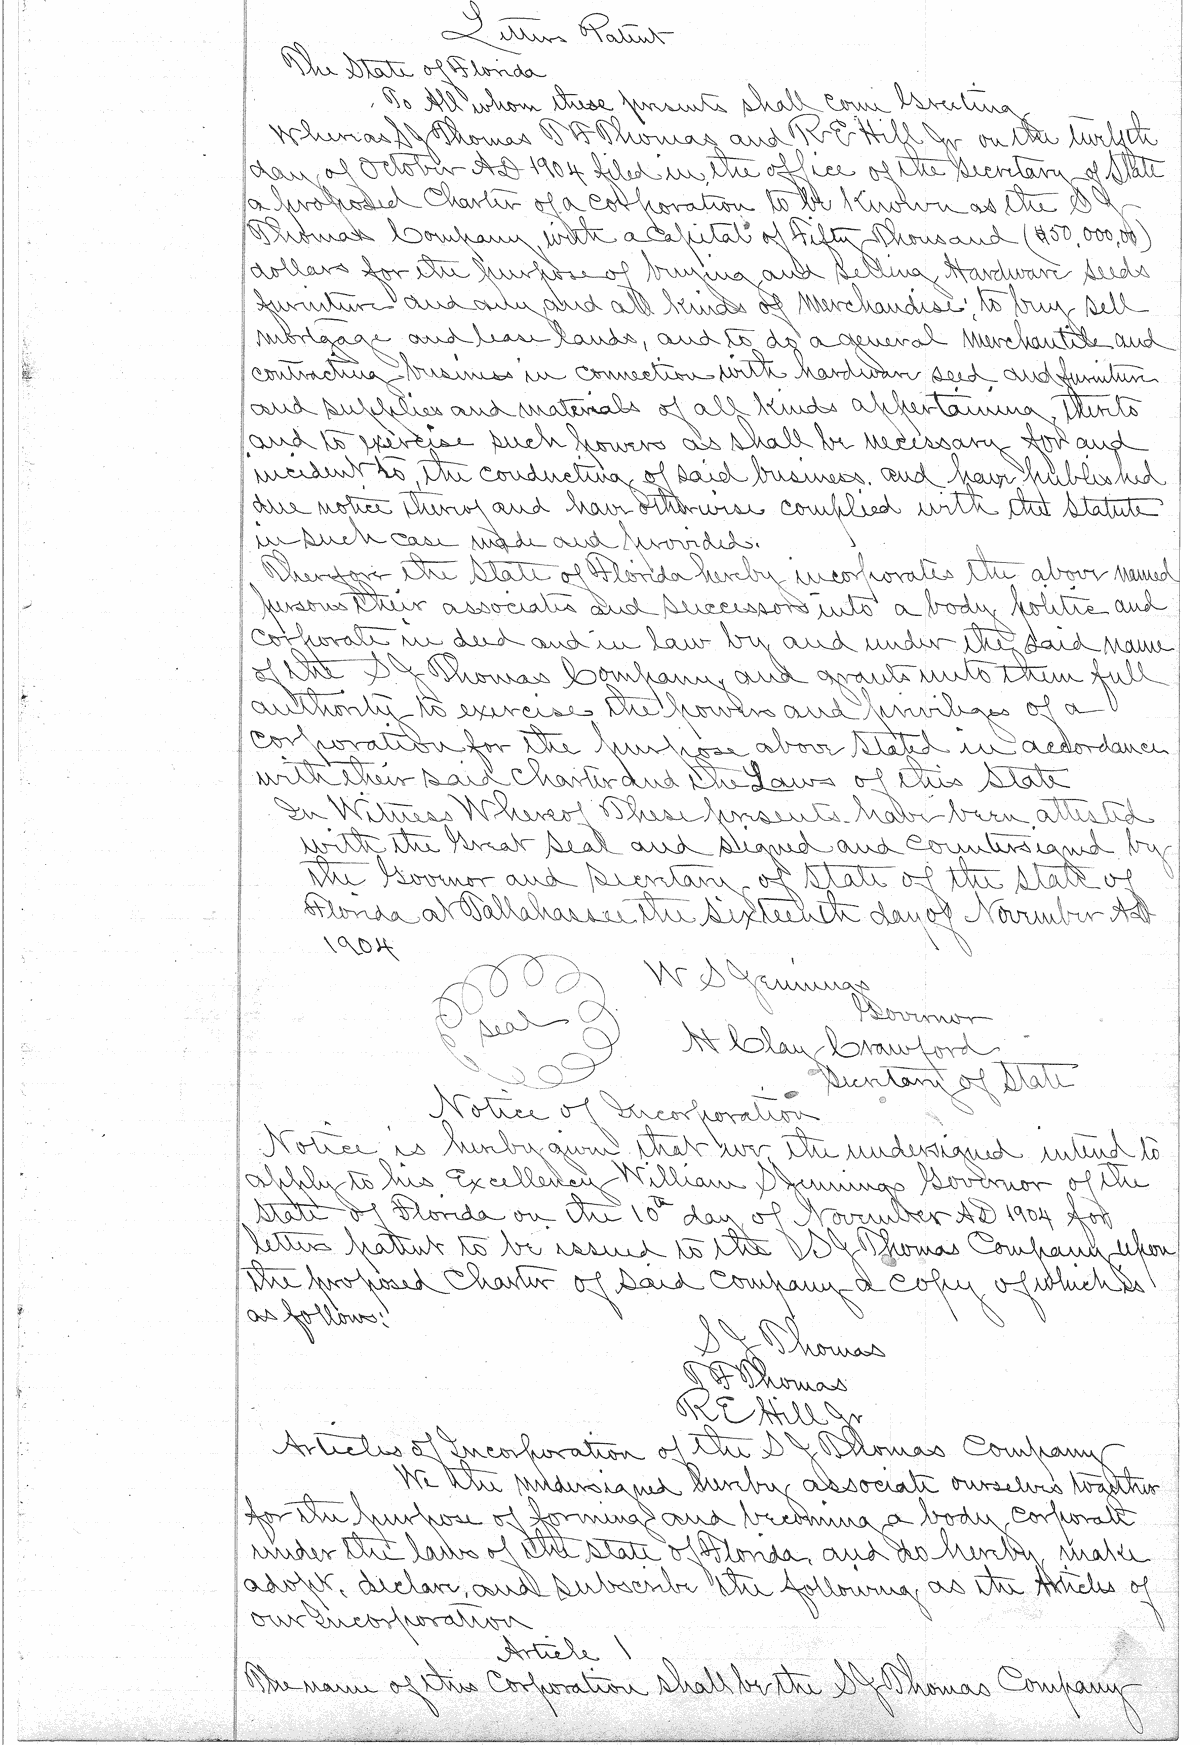 Letters Patent
The State of Florida
To All whom these presents shall come Greeting
Whereas S J Thomas T F Thomas and R E Hill Jr on the twelfth
day of October AD 1904 filed in the office of the Secretary of State
a proposed Charter of a corporation to be known as the S J
Thomas Company with a capital of Fifty Thousand ($50,000,00)
dollars for the purpose of buying and selling Hardware seeds
furniture and any and all kinds of Merchandise; to buy sell
mortgage and lease lands, and to do a general Merchantile and
contracting business in connection with hardware seed and furniture
and supplies and materials of all kinds appertaining thereto
and to exercise such powers as shall be necessary for and
incident to the conducting of said business. and have published
due notice thereof and have otherwise complied with the Statute
in such case made and provided.
Therefore the State of Florida hereby incorporates the above named
persons their associates and successors into a body politic and
corporate in deed and in law by and under the said name
of the S J Thomas Company and grants unto them full
authority to exercise the powers and privileges of a
corporation for the purpose above stated in accordance
with their said Charter and the Laws of this State
In Witness Whereof These presents have been attested
with the Great Seal and signed and countersigned by
the Govornor and Secretary of State of the State of
Florida at Tallahassee the sixteenth day of November AD
1904
W S Jennings
Seal
Govornor
H Clay Crawford
Secretary of State
Notice of Incorporation
Notice is hereby given that we the undersigned intend to
apply to his Excellency William S Jennings Governor of the
State of Florida on the 10th day of November AD 1904 for
letters patent to be issued to the S J Thomas Company upon
the proposed Charter of said company a copy of which is
as follows:
S J Thomas
T F Thomas
R E Hill Jr
Articles of Incorporation of the S J Thomas Company
We the undersigned hereby associate ourselves together
for the purpose of forming and becoming a body corporate
under the laws of the State of Florida, and do hereby make
adopt, declare, and subscribe the following as the Articles of
our Incorporation
Article 1
The name of this Corporation shall be the S J Thomas Company